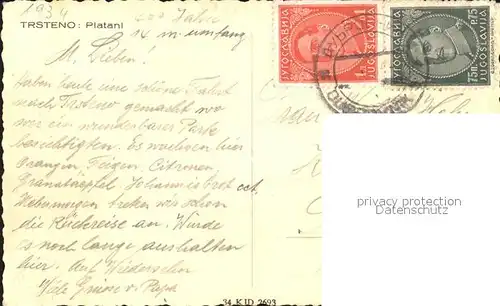 1934
TRSTENO: Platani
400 Jahre
14 m umfang
M. Lieben!
Haben heute eine schöne Fahrt
nach Trsteno gemacht wo
wir ein wunderbarer Park
besichtigten. Es wachsen hier
Orangen Feigen, Citronen
Granatäpfel, Johannisbrot ect.
treten wir schon
die Rückreise an. Würde
es noch lange aushalten
hier. Auf Wiedersehn
Viele Grüsse v. Papa
ЈУГОСЛАВИЈА
JUGOSLAVIJA
1
ЈУГОСЛАВИЈА
JUGOSLAVIJA
75
privacy protection
Datenschutz
34 K JD 2693